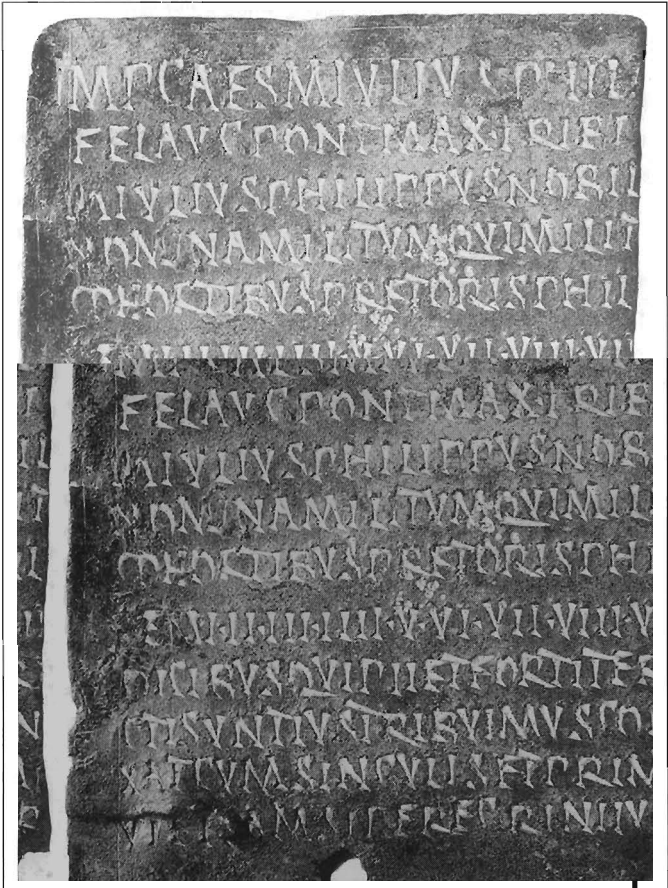 IMP CAES M IVLIVS PHILI
FEL AVG PONT MAX TRIB P
M IVLIVS PHILIPPVS NOBIL
NOMINA MILITVM QVI MILIT
COHORTIBVS PRAETORIS PHIL
FEL AVG PONT MAX TRIB
M IVLIVS PHILIPPVS NOB
NOMINA MILITVM QVI MILI
COHORTIBVS PRAETORIS PHI
I·II·III·IIII·V·VI·VII·VIII·V
DICIBVS QVI PIE ET FORTITER
CTI SVNT IVS TRIBVIMVS CO
XAT CVM SINGVLIS ET PRIM
PEREGRINI IV